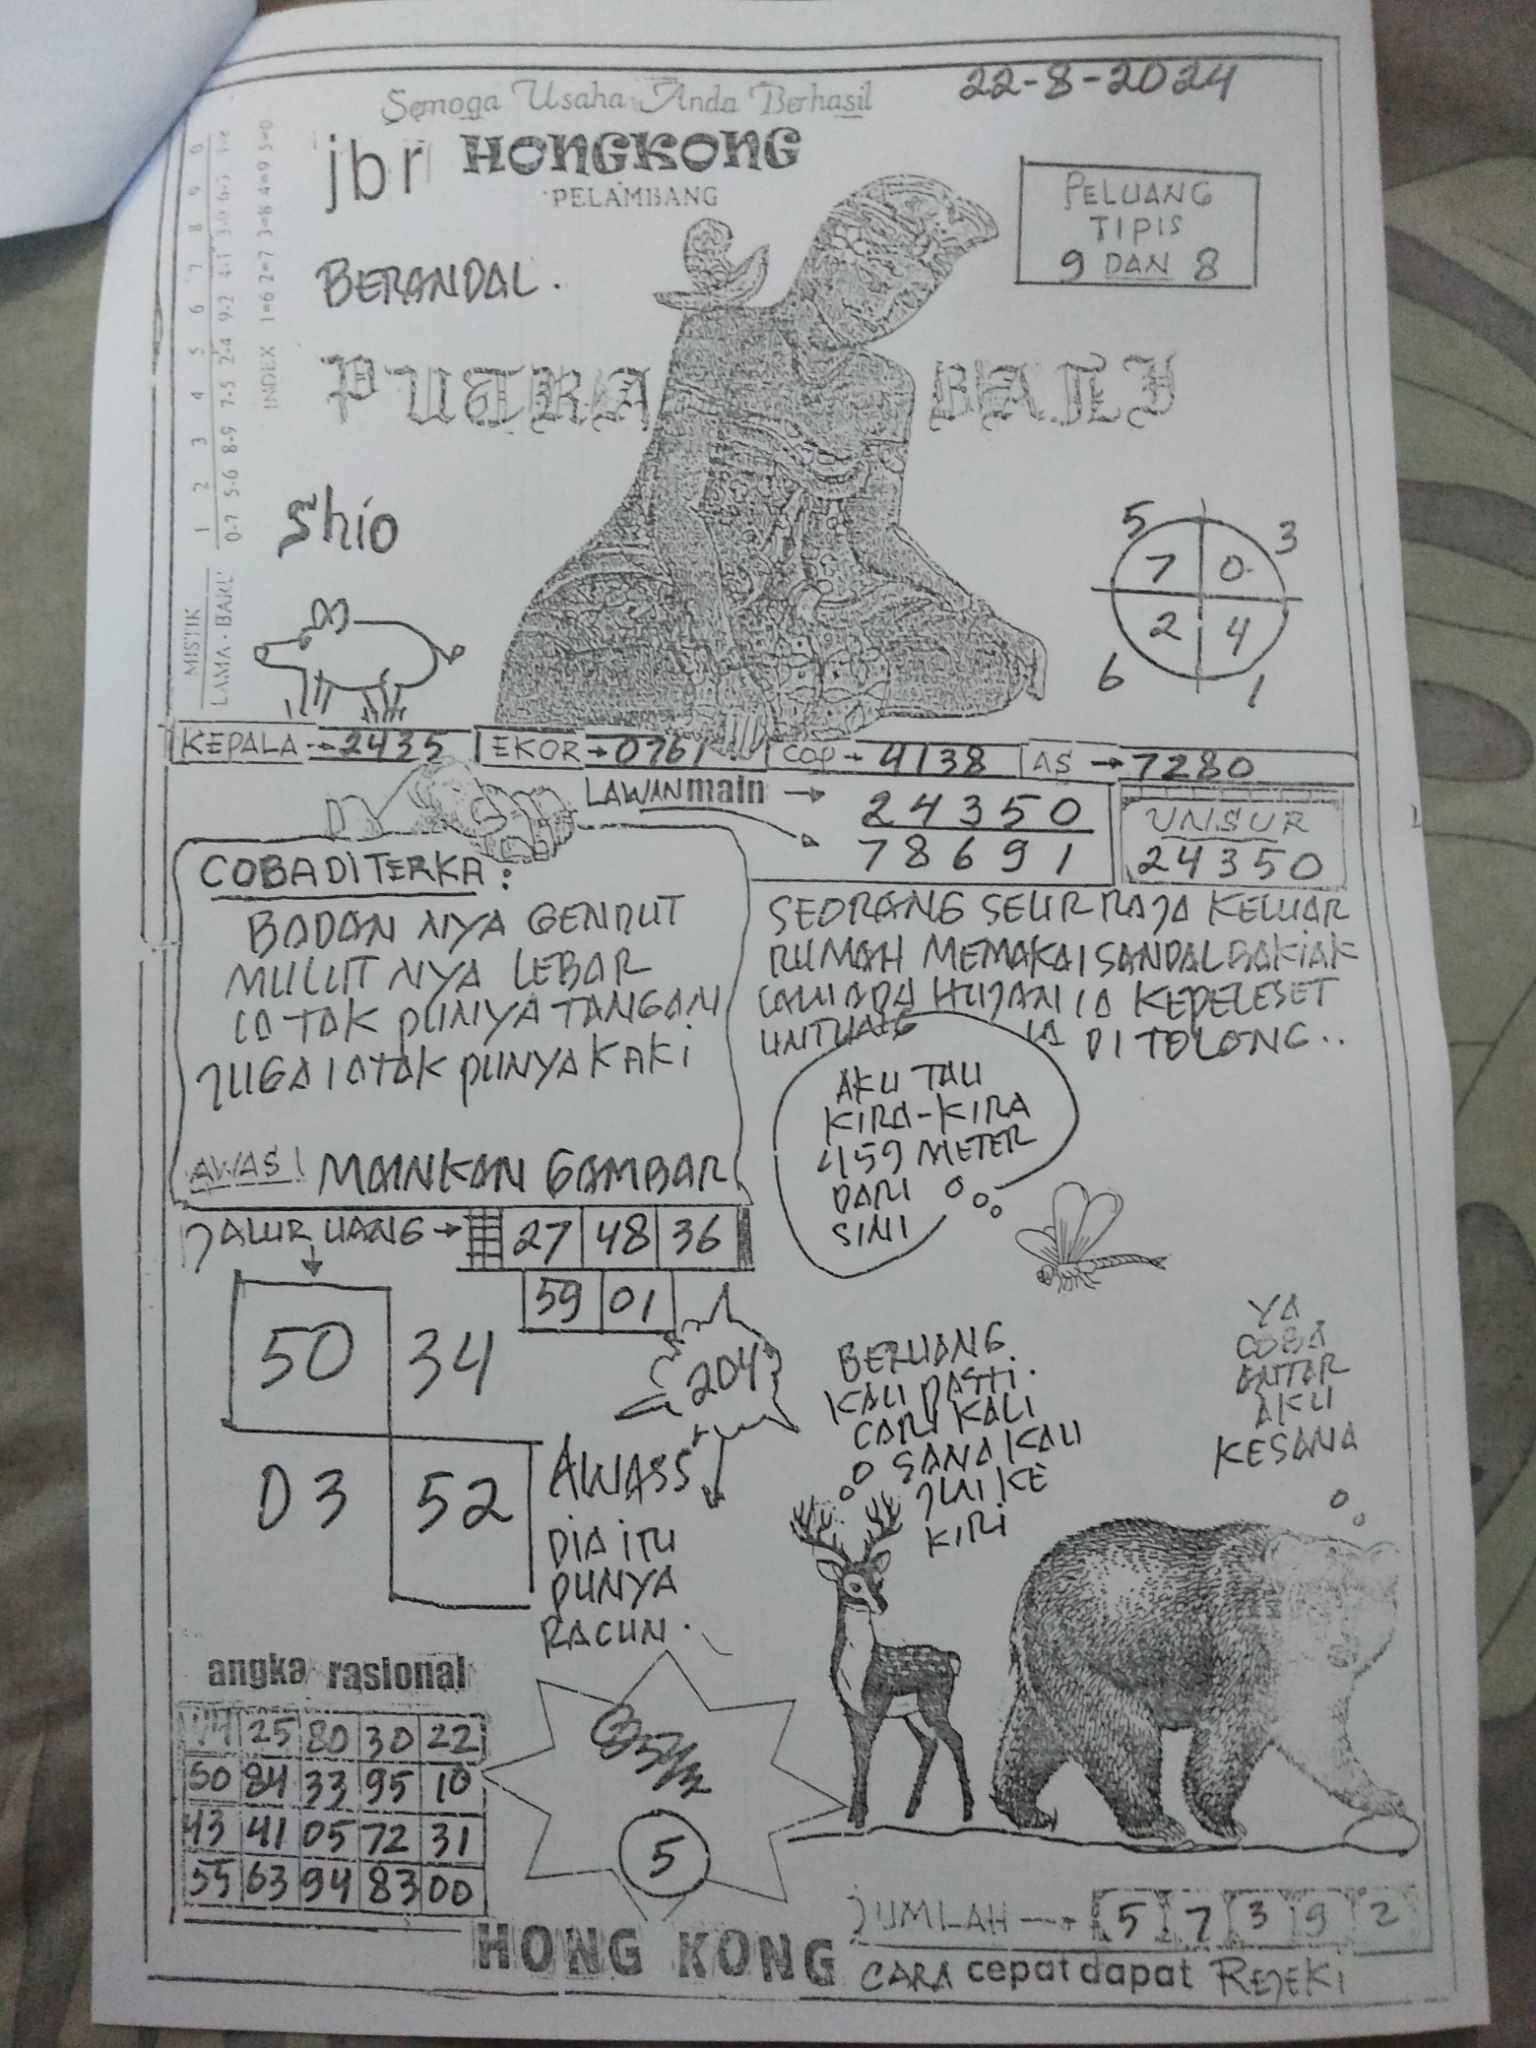 Semoga Usaha Anda Berhasil
22-8-2024
jbr HONGKONG
PELAMBANG
BERANDAL.
PELUANG
TIPIS
9 DAN 8
PUTRA BALI
MISTIK 1 2 3 4 5 6 7 8 9 0
LAMA - BARU 0-7 5-6 8-9 7-5 2-4 9-2 4-1 3-0 6-3 1-8
INDEX 1=6 2=7 3=8 4=9 5=0
Shio
5 3
7 0
2 4
6 1
KEPALA → 2435
EKOR → 0761
COP → 4138
AS → 7280
LAWAN main → 24350
78691
UNSUR
24350
COBA DI TERKA :
BADAN NYA GENDUT
MULUT NYA LEBAR
IA TAK PUNYA TANGAN
JUGA IA TAK PUNYA KAKI
AWAS! MAINKAN GAMBAR
SEORANG SELIR RAJA KELUAR
RUMAH MEMAKAI SANDAL BAKIAK
LALU ADA HUJAN IA KEPELESET
UNTUNG IA DI TOLONG..
AKU TAU
KIRA-KIRA
4159 METER
DARI
SINI
JALUR UANG → 27 48 36
59 01
50 34
03 52
204
AWASS
DIA ITU
PUNYA
RACUN.
BERUANG
KALI PASTI.
CARI KALI
SANA KALI
INI KE
KIRI
YA
COBA
ANTAR
AKU
KESANA
angka rasional
25 80 30 22
50 84 33 95 10
43 41 05 72 31
55 63 94 83 00
5
HONG KONG
JUMLAH → 5 7 3 9 2
CARA cepat dapat REJEKI